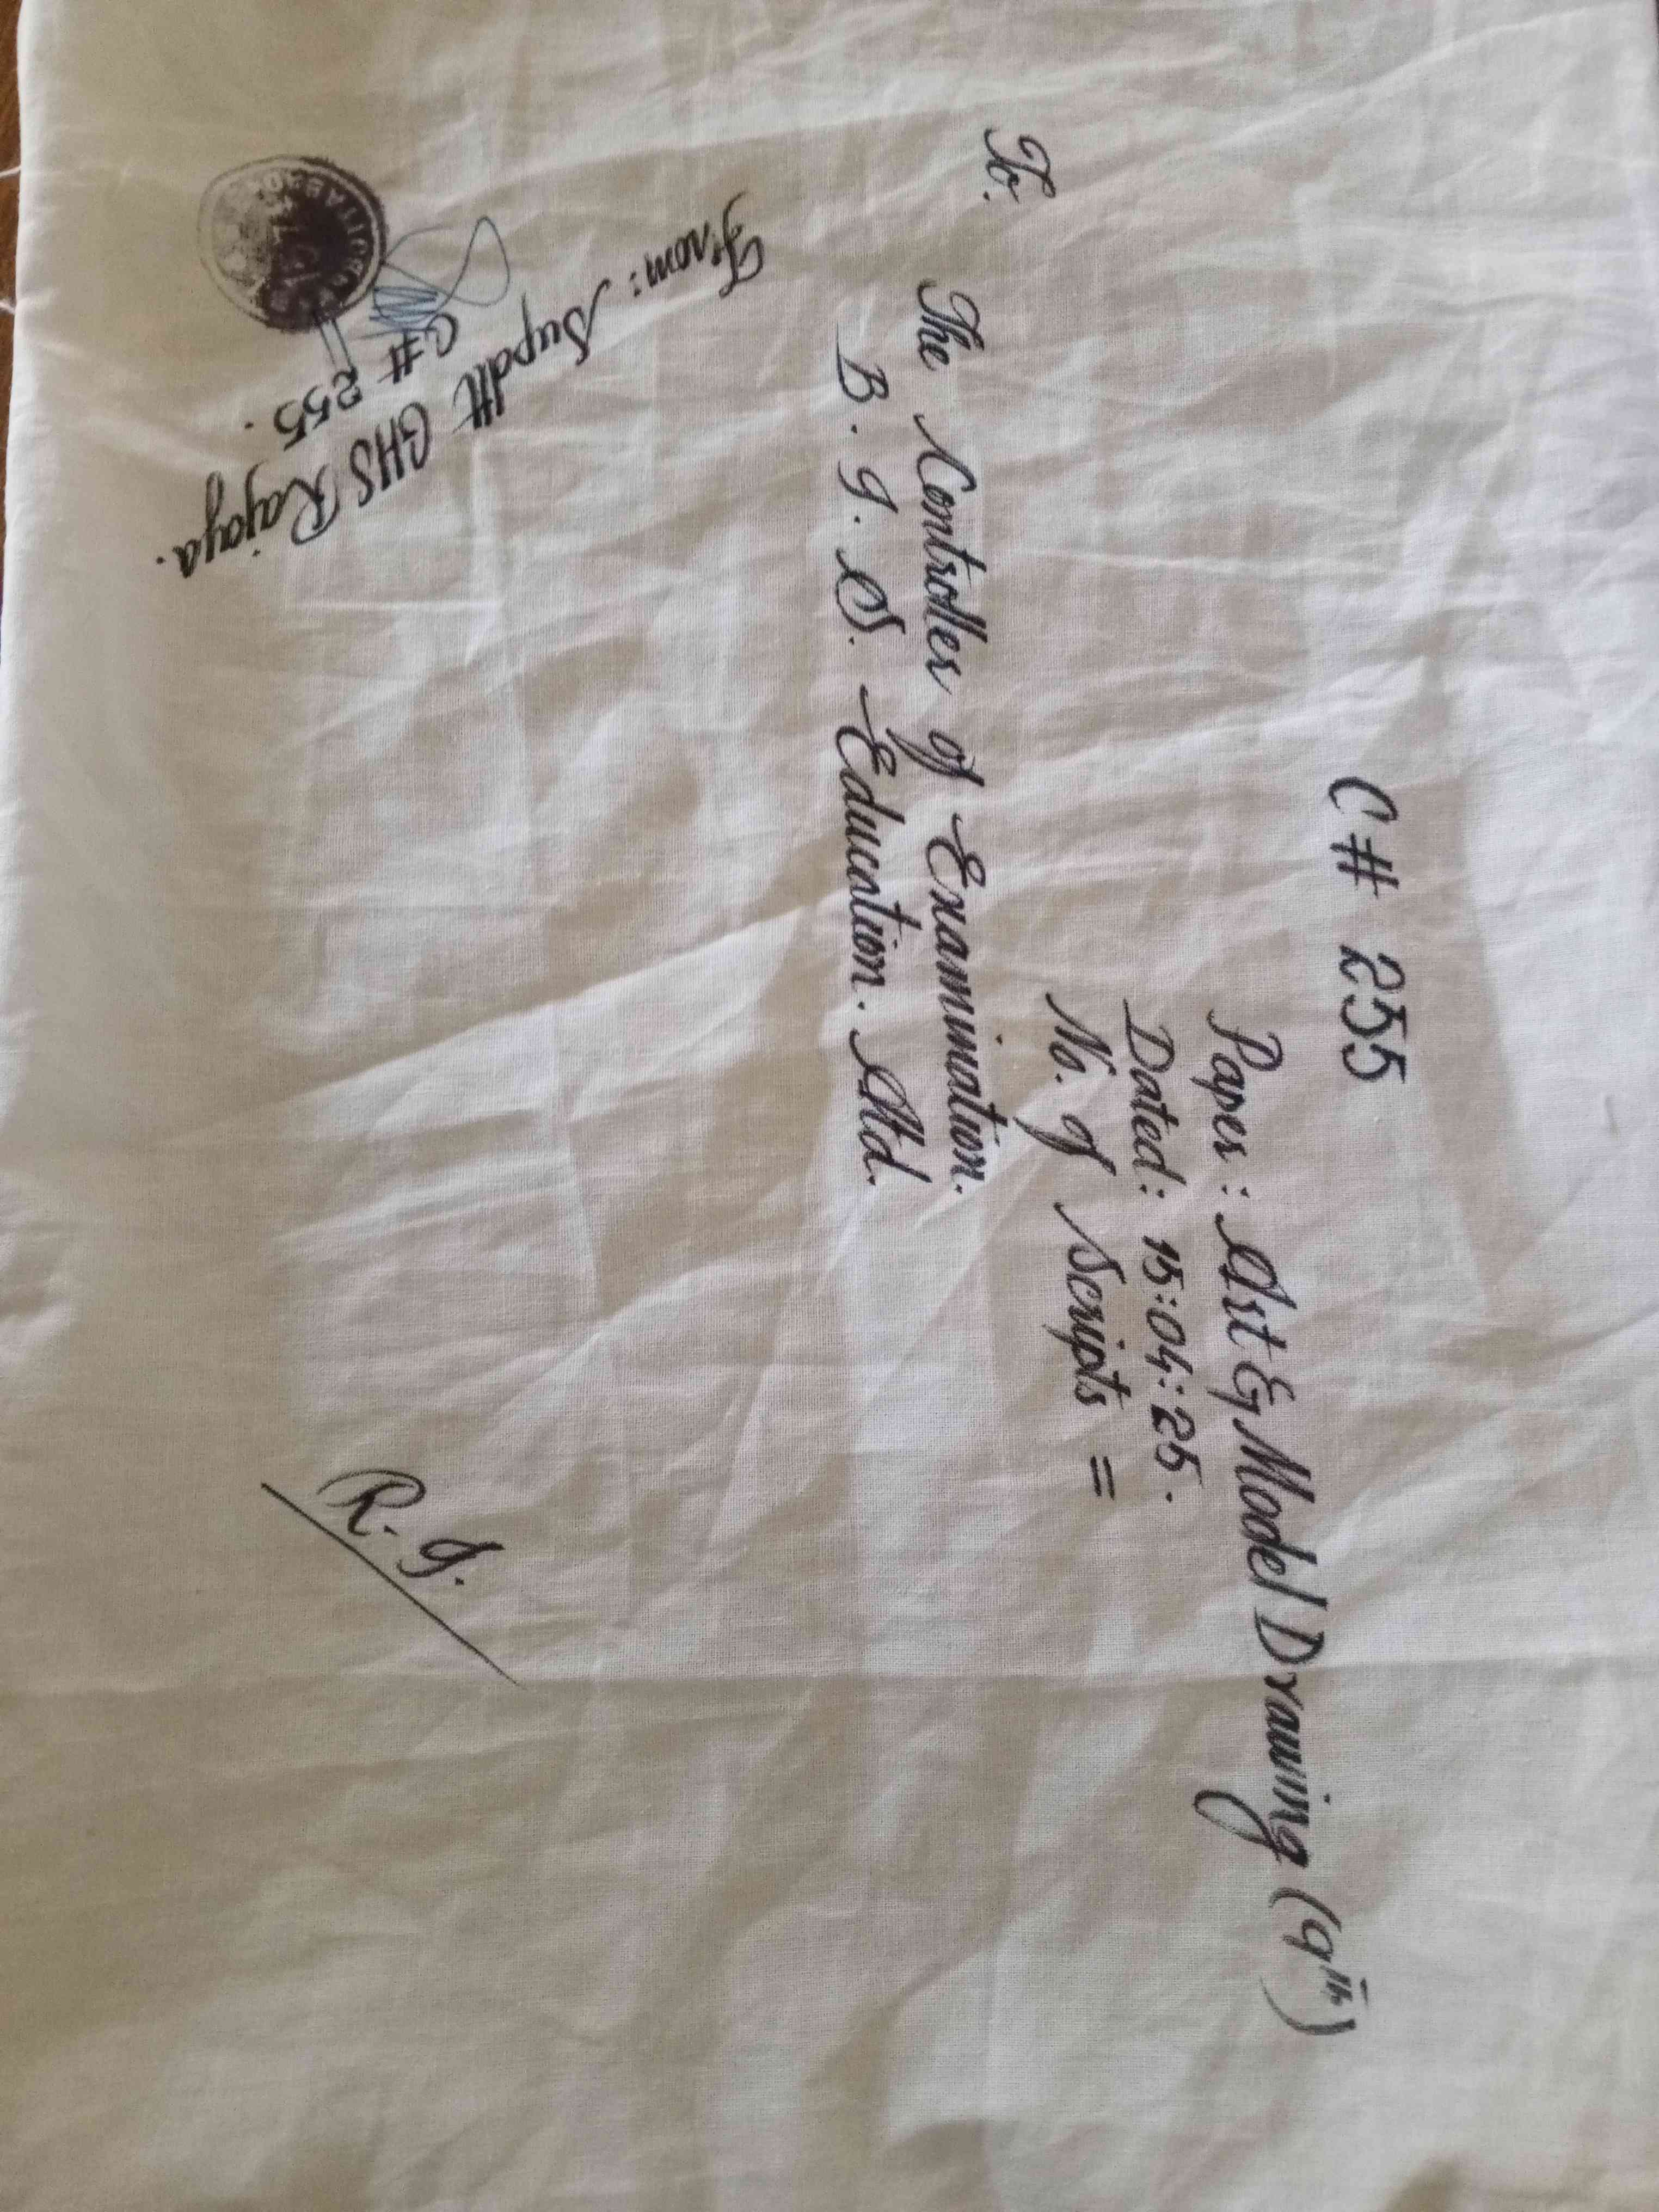 C# 255
Paper: Art & Model Drawing (9th)
Dated: 15:04:25.
No. of Scripts =
To.
The Controller of Examination.
B. I. S. Education. Atd.
From: Supdtt GHS Rajoya.
C# 255.
R. I.